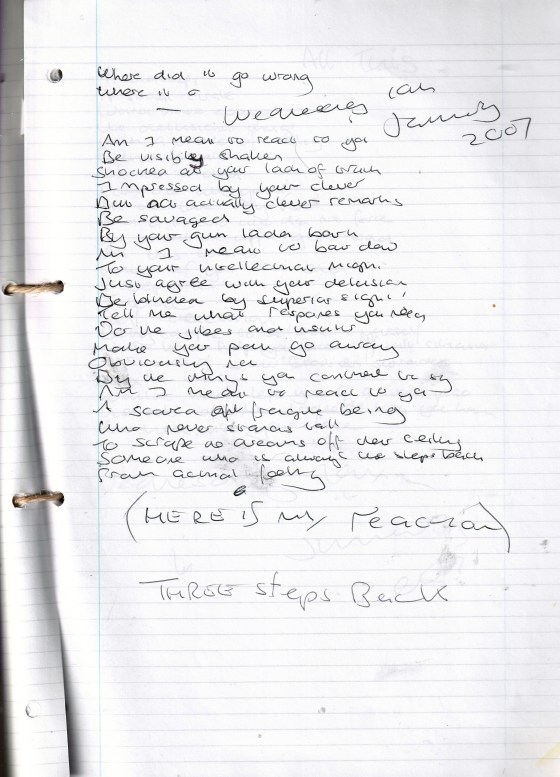 Where did it go wrong
Where is a
— Wednesday 10th
January
2007
Am I meant to react to you
Be visibly shaken
Shocked at your lack of
Impressed by your clever
But not actually clever remarks
Be savaged
By your gun laden
Am I meant to bow down
To your intellectual might
Just agree with your delusion
Be blinded by superior sight
Tell me what response you need
Do the jibes and insults
Make your pain go away
Obviously not
By the things you continue to say
Am I meant to react to you
A scared fragile being
Who never stands tall
To scrape the dreams off their ceiling
Someone who is always two steps back
From actual feeling
(HERE IS my reaction)
THREE steps Back